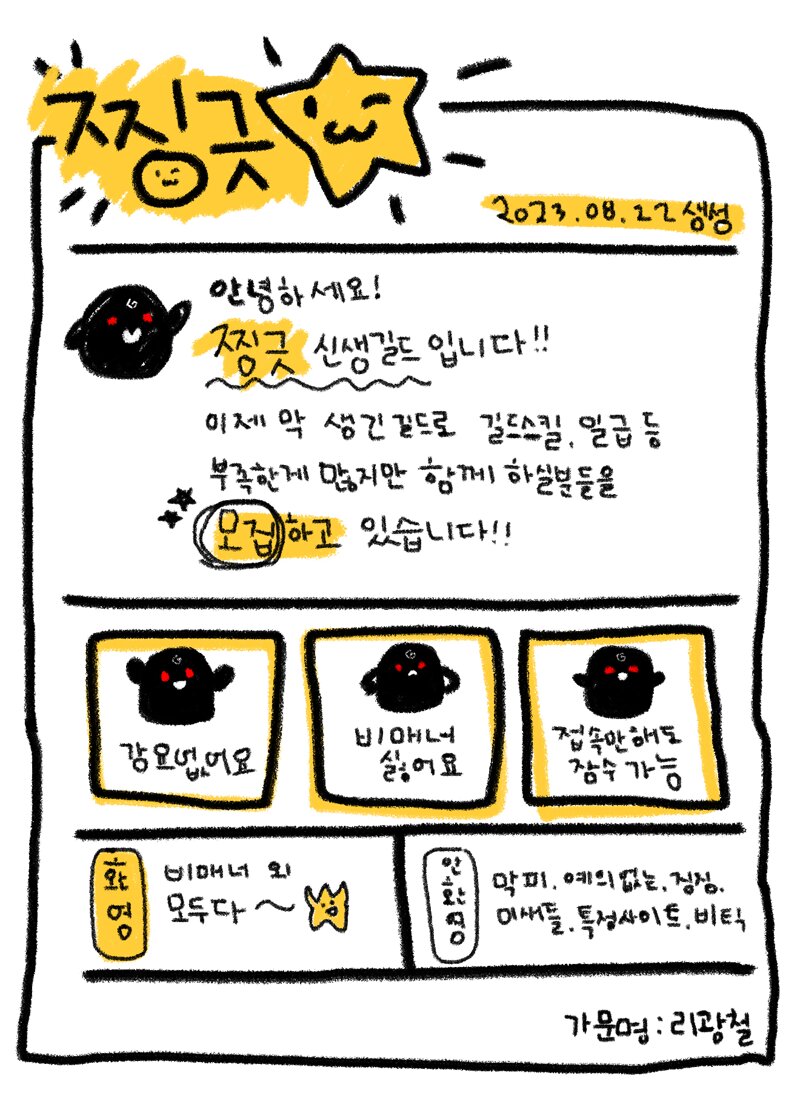 찡긋
2023.08.22 생성
안녕하세요!
찡긋 신생길드 입니다!!
이제 막 생긴 길드로 길드스킬, 일급 등
부족한게 많지만 함께 하실분들을
모집하고 있습니다!!
강요없어요
비매너
싫어요
접속만해도
잠수 가능
환영
비매너 외
모두다~
안환영
막피, 예의없는, 징징,
미새들, 특정사이트, 비틱
가문명 : 리광철